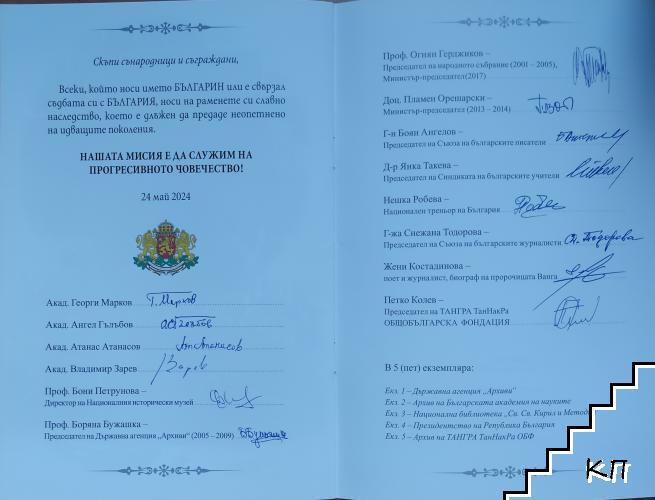 Скъпи сънародници и съграждани,
Всеки, който носи името БЪЛГАРИН или е свързал
съдбата си с БЪЛГАРИЯ, носи на раменете си славно
наследство, което е длъжен да предаде неопетнено
на идващите поколения.
НАШАТА МИСИЯ Е ДА СЛУЖИМ НА
ПРОГРЕСИВНОТО ЧОВЕЧЕСТВО!
24 май 2024
Акад. Георги Марков Г. Марков
Акад. Ангел Гълъбов
Акад. Атанас Атанасов
Акад. Владимир Зарев Зарев
Проф. Бони Петрунова –
Директор на Националния исторически музей
Проф. Боряна Бужашка –
Председател на Държавна агенция „Архиви“ (2005 – 2009)
Проф. Огнян Герджиков –
Председател на народното събрание (2001 – 2005),
Министър-председател (2017)
Доц. Пламен Орешарски –
Министър-председател (2013 – 2014)
Г-н Боян Ангелов –
Председател на Съюза на българските писатели
Д-р Янка Такева –
Председател на Синдиката на българските учители
Нешка Робева –
Национален треньор на България
Г-жа Снежана Тодорова –
Председател на Съюза на българските журналисти Сн. Тодорова
Жени Костадинова –
поет и журналист, биограф на пророчицата Ванга
Петко Колев –
Председател на ТАНГРА ТанНакРа
ОБЩОБЪЛГАРСКА ФОНДАЦИЯ
В 5 (пет) екземпляра:
Екз. 1 – Държавна агенция „Архиви“
Екз. 2 – Архив на Българската академия на науките
Екз. 3 – Национална библиотека „Св. Св. Кирил и
Екз. 4 – Президентство на Република България
Екз. 5 – Архив на ТАНГРА ТанНакРа ОБФ
КП